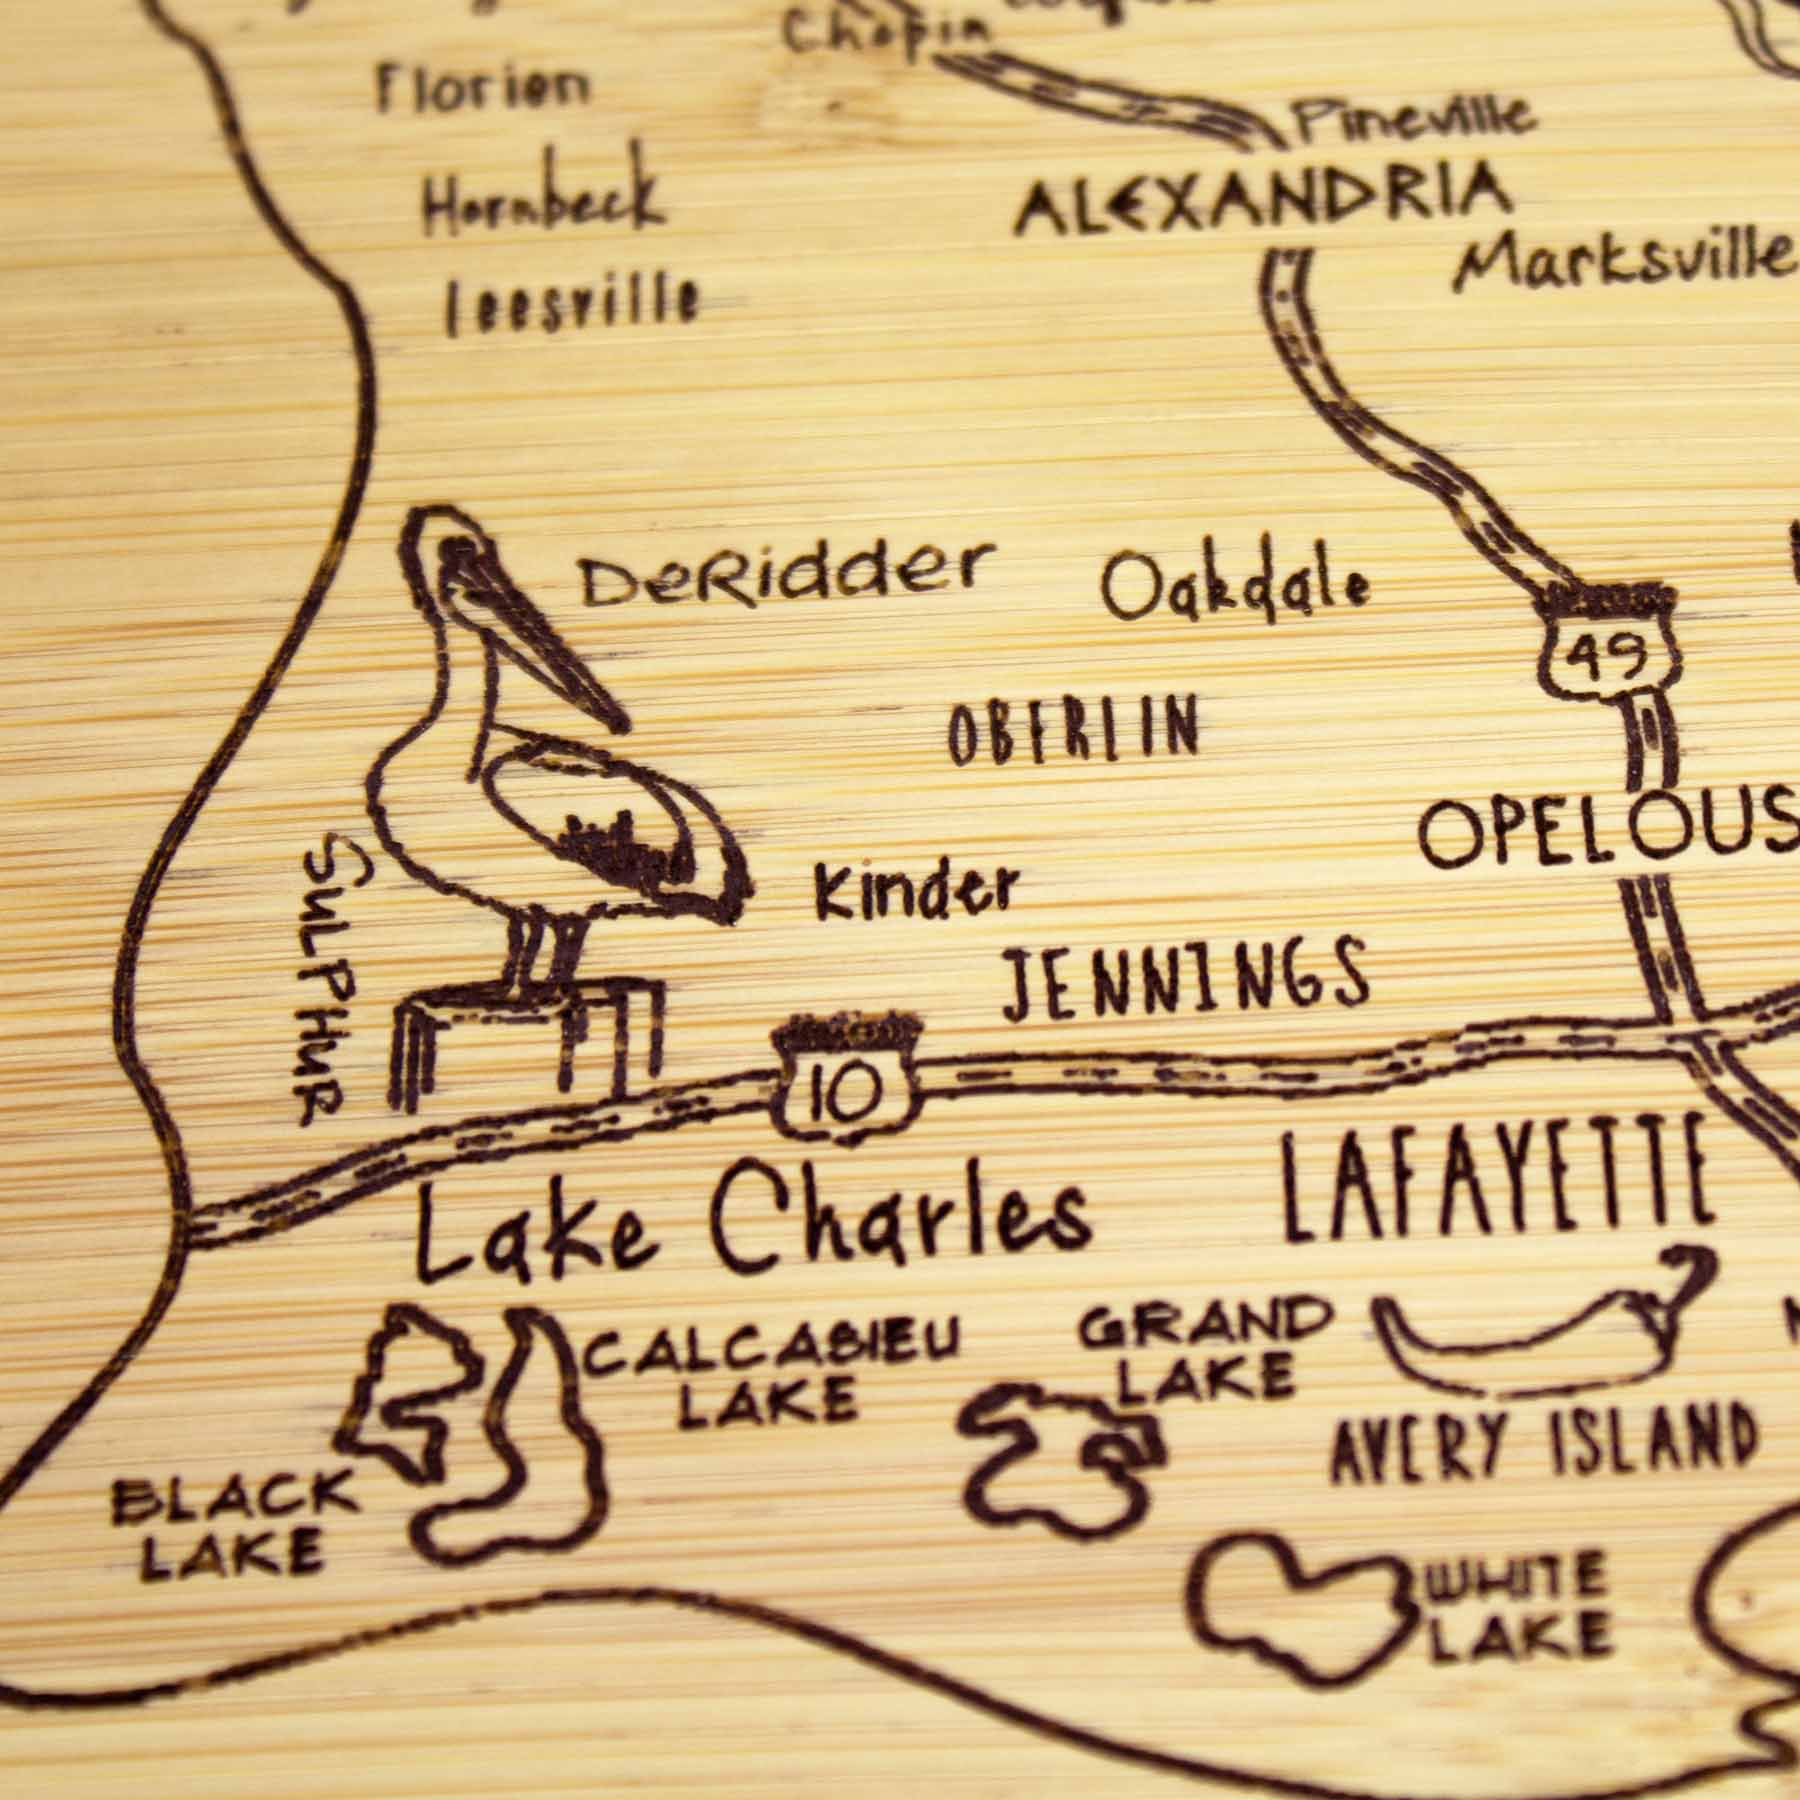 Chopin
Florien
Pineville
Hornbeck
ALEXANDRIA
Marksville
leesville
DeRidder
Oakdale
49
OBERLIN
OPELOUS
SULPHUR
Kinder
JENNINGS
10
Lake Charles
LAFAYETTE
CALCASIEU
LAKE
GRAND
LAKE
AVERY ISLAND
BLACK
LAKE
WHITE
LAKE